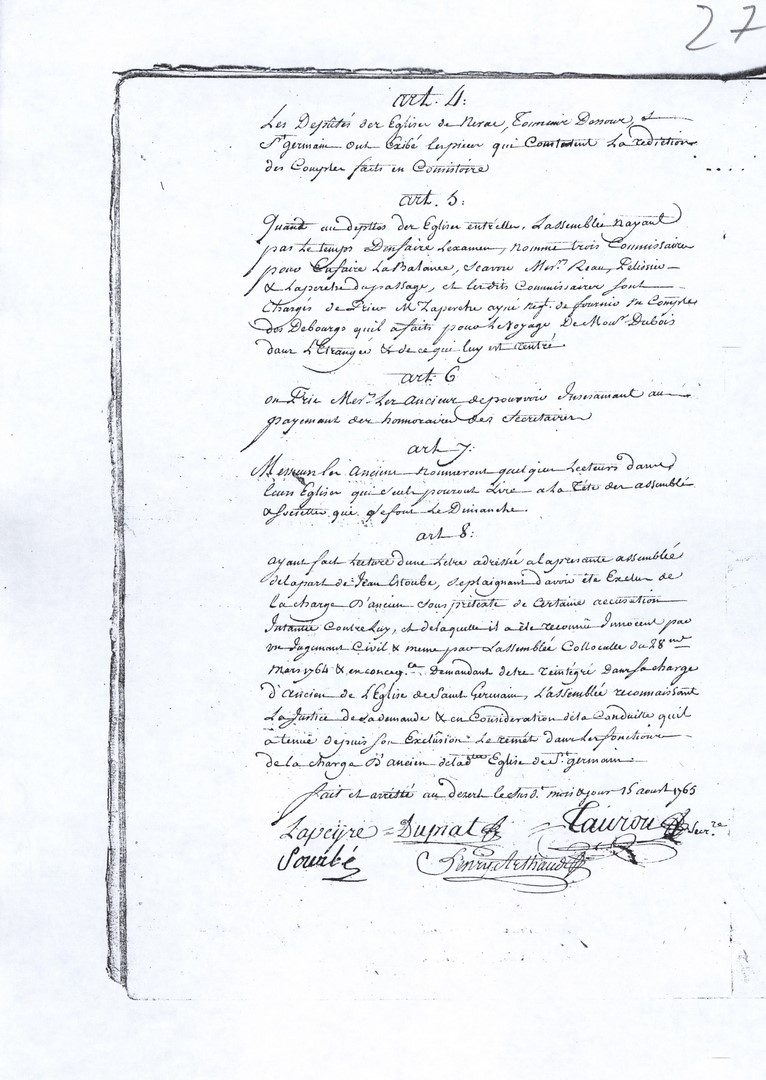 27
art. 4:
Les Deputés des Eglises de Nerac, Tonneins Dessous, et
St germain ont Exibé les pieces qui Constatent La rediction
des Comptes faits en Consistoire
art. 5:
Quand au depttes des Eglises entr'elles, Lassemblée Nayant
pas Le temps D'en faire L'examen, nomme trois Commissaires
pour En faire La Balance, Scavoir Mesrs Reau, Pelissie
& Laperche dupassage, et lesdits Commissaires sont
Chargés de Prier Mr Laperche ayné negt de fournir un Compte
des Debourgs quil a faits pour Le Voyage De Monr Dubois
dans L'Etrangés & de ce qui luy est rentré
art. 6
on Prie Mesrs Les anciens de pourvoir Incesamant au
payemant des honoraires des Secretaires
art 7:
Messieurs les anciens nommeront quelques Lecteurs dans
leurs Eglises qui seuls pouront Lire a la Tête des assemblé
& Sosietes que se font Le Dimanche.
art 8:
ayant fait Lecture d'une Letre adressée a la presante assemblée
de la part de Sr Jean , se plaignant d'avoir été Exclus de
la charge D'ancien sous pretexte de Certaine accusation
Intantée Contre Luy, et de laquelle il a été reconnu Innocent par
un Jugemant Civil & meme par L'assemblée Colloculle du 28me
Mars 1764 & en conceqce Demandant detre reintégré dans sa charge
d'Ancien de L'Eglise de Saint Germain, L'assemblé reconnaissant
La Justice de La demande & en Consideration de la Conduite quil
a tenue depuis son Exclusion Le remet dans les fonctions
de la charge D'Ancien de lad Eglise de St germain
fait et arrêtté au dezert le susdt mois & jour 15 aoust 1765
Lapeyre = Dupiat Taurou Secre
Sourbé Henry Arthaud